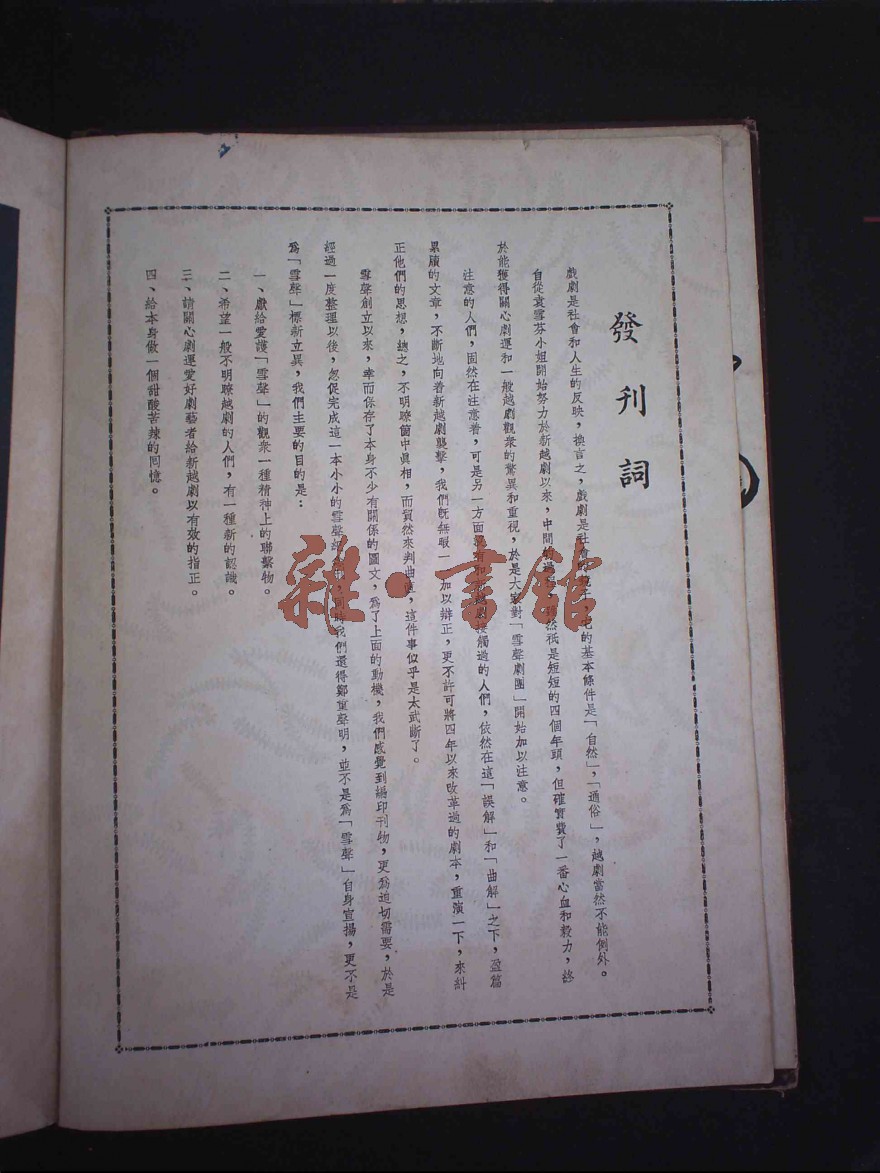 發刊詞
戲劇是社會和人生的反映，換言之，戲劇是社會 它的基本條件是「自然」，「通俗」，越劇當然不能例外。
自從袁雪芬小姐開始努力於新越劇以來，中間的 然祇是短短的四個年頭，但確實費了一番心血和毅力，終
於能獲得關心劇運和一般越劇觀衆的驚異和重視，於是大家對「雪聲劇團」開始加以注意。
注意的人們，固然在注意着，可是另一方面 有和 劇接觸過的人們，依然在這「誤解」和「曲解」之下，盈篇
累牘的文章，不斷地向着新越劇襲擊，我們旣無暇一一加以辯正，更不許可將四年以來改革過的劇本，重演一下，來糾
正他們的思想，總之，不明瞭箇中眞相，而貿然來判曲直，這件事似乎是太武斷了。
雪聲創立以來，幸而保存了本身不少有關係的圖文，爲了上面的動機，我們感覺到編印刊物，更爲迫切需要，於是
經過一度整理以後，忽促完成這一本小小的雪聲紀 同時我們還得鄭重聲明，並不是爲「雪聲」自身宣揚，更不是
爲「雪聲」標新立異，我們主要的目的是：
一、獻給愛護「雪聲」的觀衆一種精神上的聯繫物。
二、希望一般不明瞭越劇的人們，有一種新的認識。
三、請關心劇運愛好劇藝者給新越劇以有效的指正。
四、給本身做一個甜酸苦辣的囘憶。
雜·書館